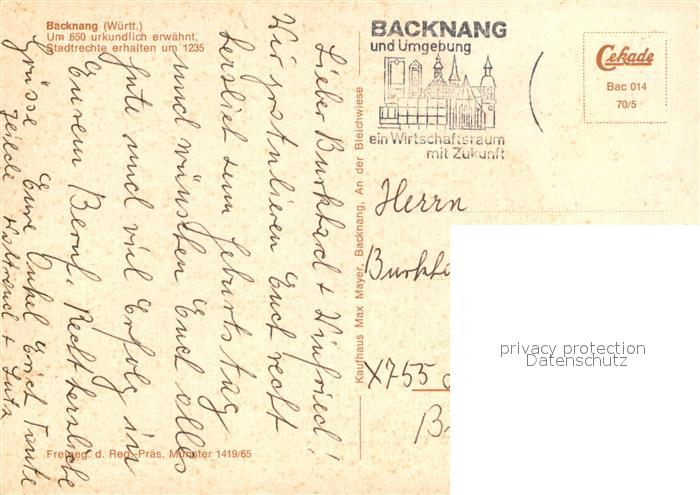 Backnang (Württ.)
Um 650 urkundlich erwähnt,
Stadtrechte erhalten um 1235
Lieber Burkhard + Winfried!
Wir gratulieren Euch recht
herzlich zum Geburtstag
und wünschen Euch alles
Gute und viel Erfolg im
Eurem Beruf. Recht herzliche
Grüsse Eure Onkel Erich Tante
+ Luta
Freigeg. d. Reg.-Präs. Münster 1419/65
Kaufhaus Max Mayer, Backnang, An der Bleichwiese
BACKNANG
und Umgebung
ein Wirtschaftsraum
mit Zukunft
Cekade
Bac 014
70/5
Herrn
Burkh
X755
B
privacy protection
Datenschutz